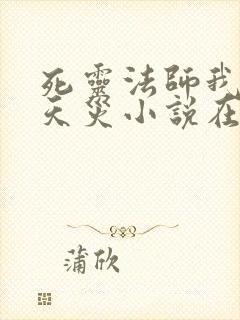 死靈法師我
天災小說在
蒲欣